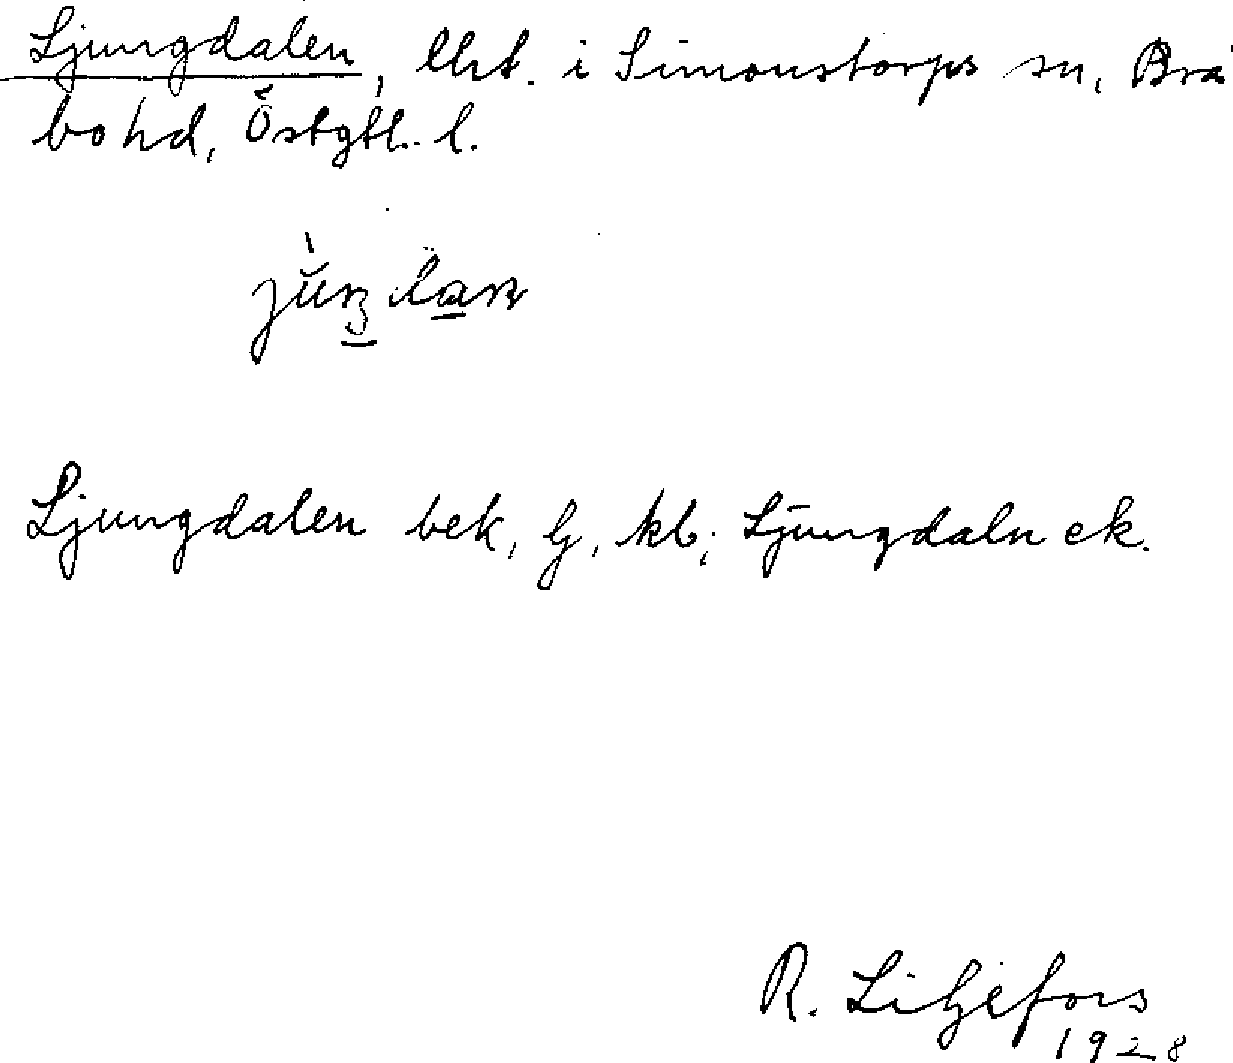 Ljungdalen, lht. i Simonstorps sn, Brå
bo hd, Östgtl. l.
Ljungdalen bek, lj, kb; Ljungdaln ek.
R. Liljefors
1928